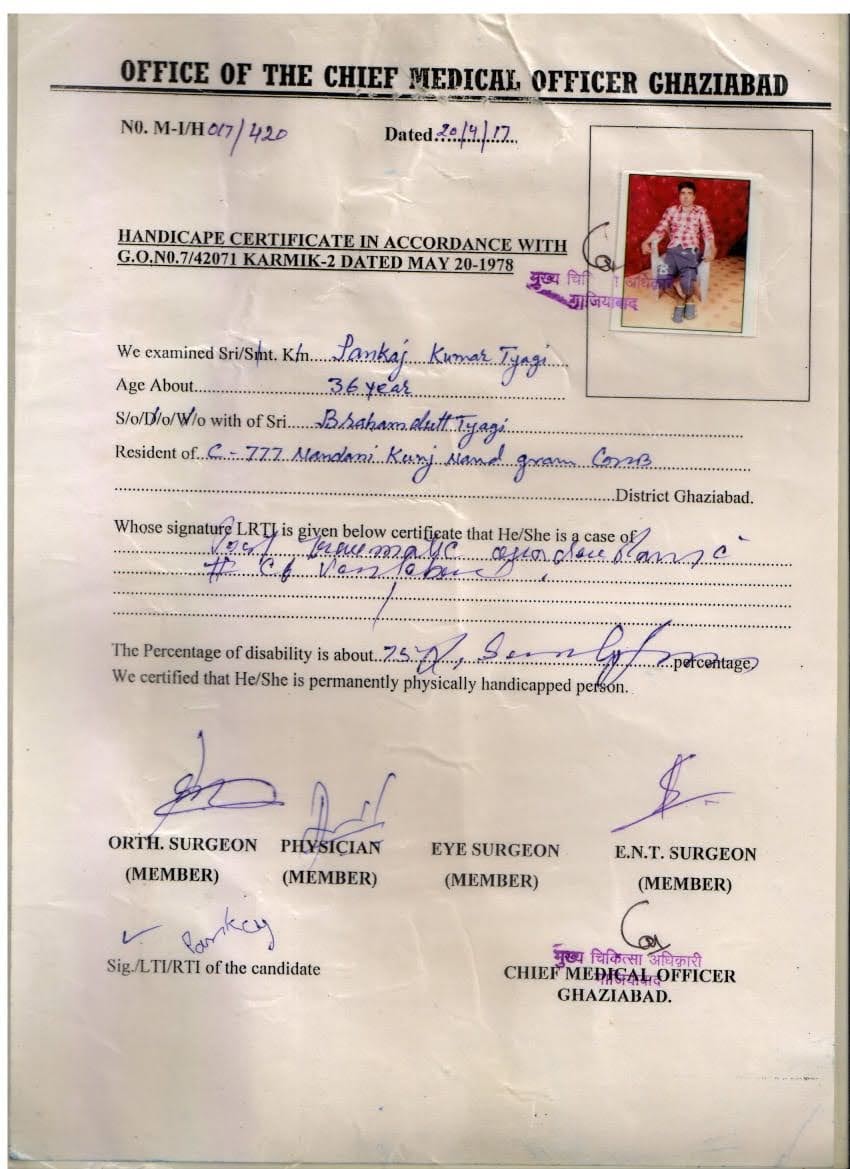 OFFICE OF THE CHIEF MEDICAL OFFICER GHAZIABAD
N0. M-I/H 017/420 Dated 20/4/17
HANDICAPE CERTIFICATE IN ACCORDANCE WITH
G.O.N0.7/42071 KARMIK-2 DATED MAY 20-1978
मुख्य चि अधिकारी
गाजियाबाद
We examined Sri/Smt. K/n.... Pankaj Kumar Tyagi
Age About.................... 36 year
S/o/D/o/W/o with of Sri..... Brahamdutt Tyagi
Resident of.. C-777 Nandani Kunj Nand gram
District Ghaziabad.
Whose signature LRTI is given below certificate that He/She is a case of
Post Traumatic
# C6
The Percentage of disability is about.. 75%, percentage
We certified that He/She is permanently physically handicapped person.
ORTH. SURGEON PHYSICIAN EYE SURGEON E.N.T. SURGEON
(MEMBER) (MEMBER) (MEMBER) (MEMBER)
Pankaj
Sig./LTI/RTI of the candidate
मुख्य चिकित्सा अधिकारी
CHIEF MEDICAL OFFICER
गाजियाबाद
GHAZIABAD.